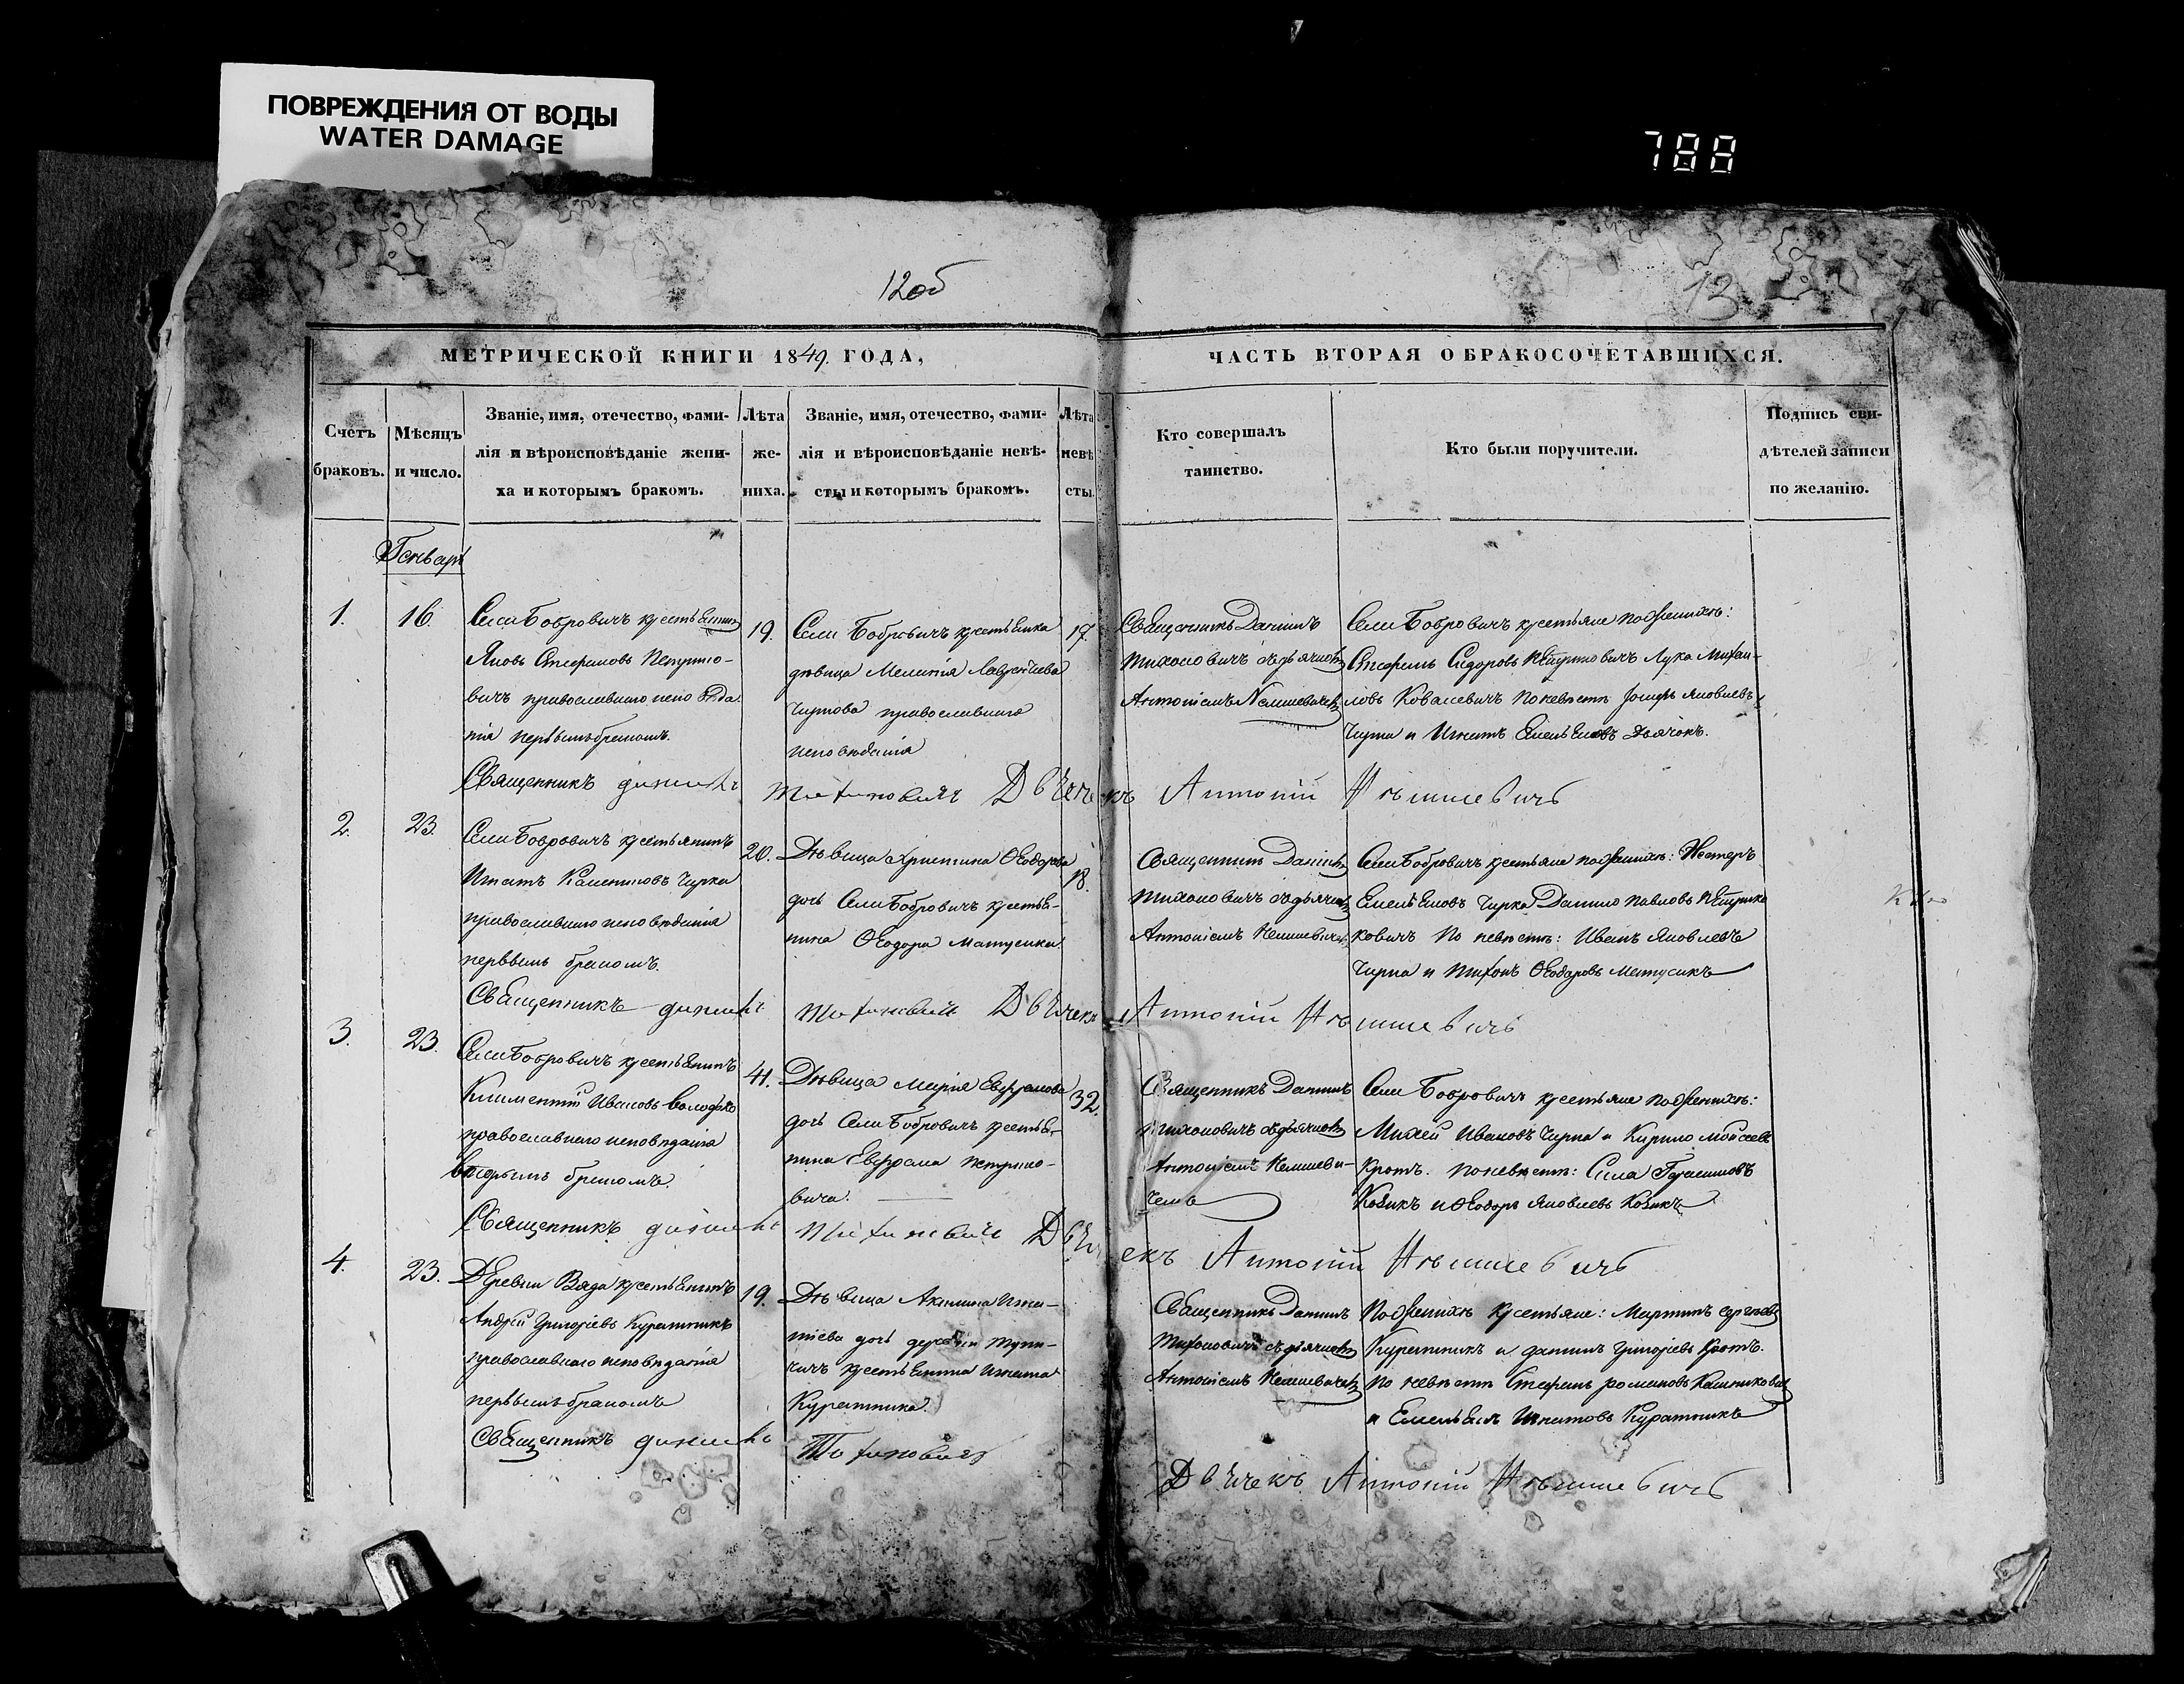 ПОВРЕЖДЕНИЯ ОТ ВОДЫ
WATER DAMAGE
788
12об
13
МЕТРИЧЕСКОЙ КНИГИ 1849. ГОДА,
ЧАСТЬ ВТОРАЯ О БРАКОСОЧЕТАВШИХСЯ.
Счетъ
браковъ.
Мѣсяцъ
и число.
Званіе, имя, отечество, фами-
лія и вѣроисповѣданіе жени-
ха и которымъ бракомъ.
Лѣта
же-
ниха.
Званіе, имя, отечество, фами-
лія и вѣроисповѣданіе невѣ-
сты и которымъ бракомъ.
Лѣта
невѣ
сты.
Кто совершалъ
таинство.
Кто были поручители.
Подпись сви-
дѣтелей записи
по желанію.
Генварь
1.
16.
Села Бобровичъ крестьянинъ
Яковъ Стефановъ Петрико-
вичъ православнаго исповѣда
нія первымъ бракомъ.
19.
Села Бобровичъ крестьянка
дѣвица Мелитія Лаврентіева
Чиркова православнаго
исповѣданія
17.
Священникъ Даніилъ
Тихоновичъ съ дьячкомъ
Антоніемъ
Села Бобровичъ крестьяне по женихѣ:
Стефанъ Сидоровъ Петриковичъ Лука Михаи-
ловъ Ковалевичъ по невѣстѣ Іосифъ Яковлевъ
Чирка и Игнатъ Емельяновъ Дьячокъ.
Священникъ Даніилъ Тихоновичъ Дьячекъ Антоній
2.
23.
Села Бобровичъ крестьянинъ
Игнатъ Калениковъ Чирка
православнаго исповѣданія
первымъ бракомъ.
20.
Дѣвица Христина Ѳеодорова
дочь Села Бобровичъ крестья-
нина Ѳеодора Матусика
18.
Священникъ Даніилъ
Тихоновичъ съ дьячкомъ
Антоніемъ
Села Бобровичъ крестьяне по женихѣ: Нестеръ
Емельяновъ Чирка Данило Павловъ Петрико
ковичъ по невѣстѣ: Иванъ Яковлевъ
Чирка и Тихонъ Ѳеодоровъ Матусикъ
Священникъ Даніилъ Тихоновичъ Дьячекъ Антоній
3.
23.
Села Бобровичъ крестьянинъ
Климентій Ивановъ Володько
православнаго исповѣданія
вторымъ бракомъ.
41.
Дѣвица Марія Евфрамова
дочь Села Бобровичъ крестья-
нина Евфрама Петрико-
вича.
32.
Священникъ Даніилъ
Тихоновичъ съ дьячкомъ
Антоніемъ
чемъ
Села Бобровичъ крестьяне по женихѣ:
Михей Ивановъ Чирка и Кирило Моисеевъ
Кротъ. по невѣстѣ: Сила Герасимовъ
Козикъ и Ѳеодоръ Яковлевъ Козикъ
Священникъ Даніилъ Тихоновичъ Дьячекъ Антоній
4.
23.
Деревни Вяда крестьянинъ
Андрей Григоріевъ Куратникъ
православнаго исповѣданія
первымъ бракомъ
19.
Дѣвица Акилина Игна-
тіева дочь деревни Тупи-
чичъ крестьянина Игната
Куратника.
Священникъ Даніилъ
Тихоновичъ съ дьячкомъ
Антоніемъ
По женихѣ крестьяне: Мартинъ Сергѣевъ
Куратникъ и Даніилъ Григоріевъ Кротъ.
по невѣстѣ Стефанъ Романовъ
и Емельянъ Игнатовъ Куратникъ
Священникъ Даніилъ Тихоновичъ
Дьячекъ Антоній